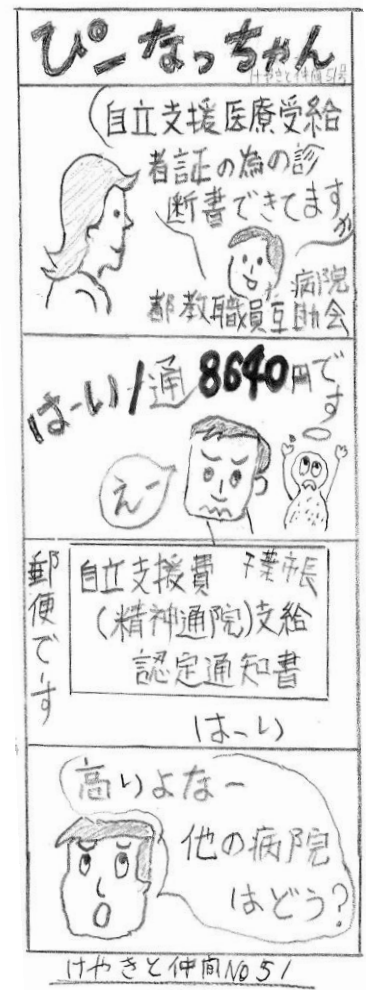 ぴーなっちゃん
けやきと仲間51号
自立支援医療受給
者証の為の診
断書できてますか
病院
都教職員互助会
はーい1通8640円です
えー
郵便でーす
自立支援費 千葉市長
(精神通院)支給
認定通知書
はーい
高いよなー
他の病院
はどう?
けやきと仲間No51